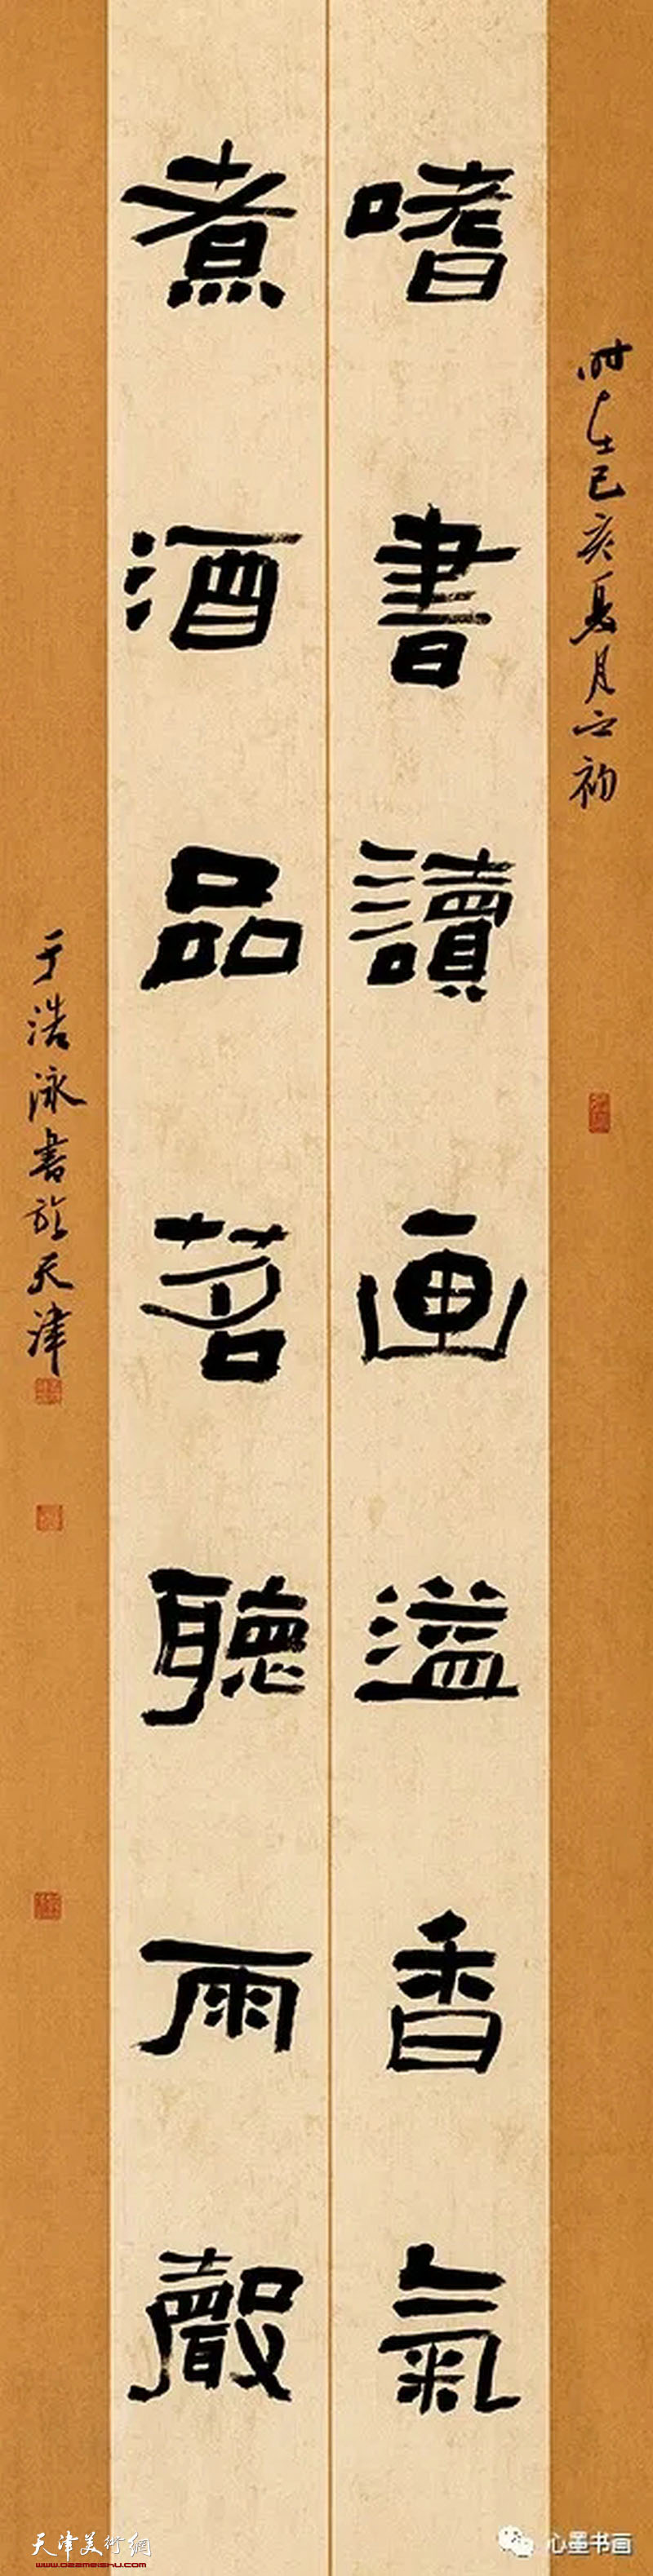 时在己亥夏月之初
嗜書讀画溢香氣
煮酒品茗聽雨聲
于浩泳書於天津
天津美術網
心墨书画